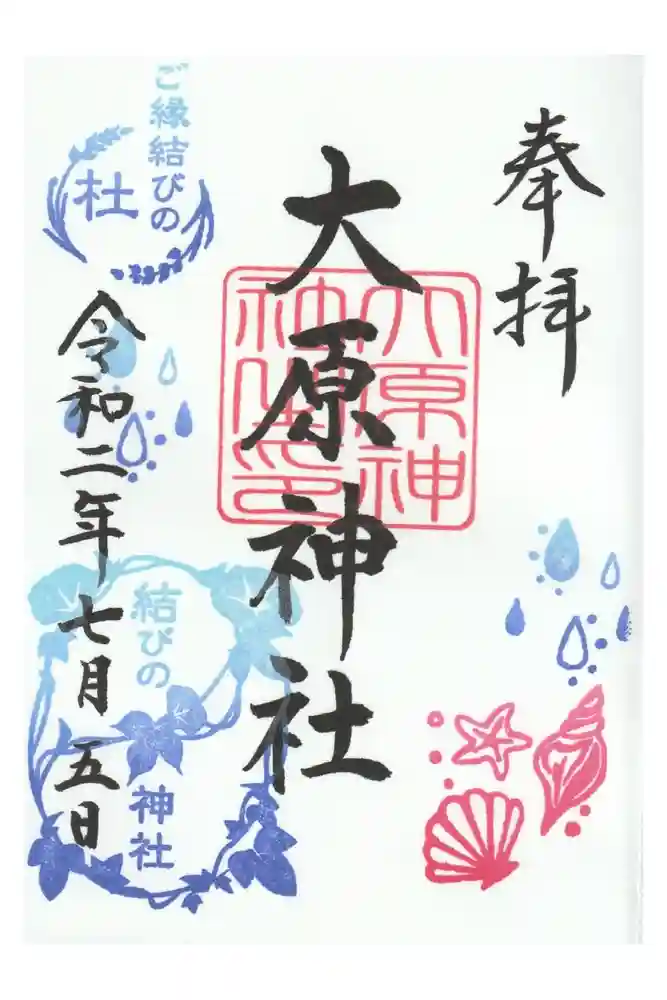 奉拝
大原神社
大原神
社御印
ご縁結びの
杜
令和二年七月五日
結びの
神社